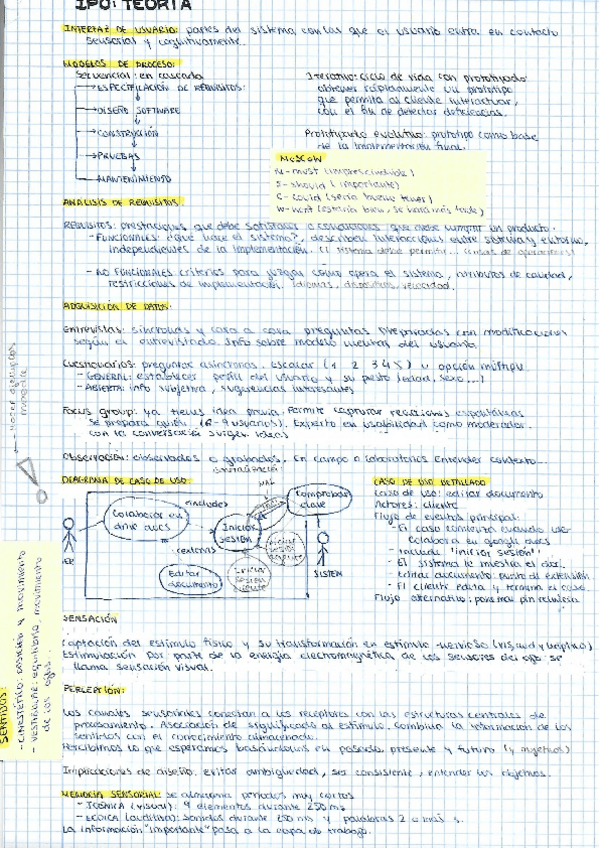 IPO: TEORÍA
INTERFAZ DE USUARIO: partes del sistema con las que el usuario entra en contacto
sensorial y cognitivamente.
MODELOS DE PROCESO:
Secuencial: en cascada
ESPECIFICACIÓN DE REQUISITOS:
DISEÑO SOFTWARE
CONSTRUCCIÓN
PRUEBAS
MANTENIMIENTO
Iterativo: ciclo de vida con prototipado
obtener rápidamente un prototipo
que permita al cliente interactuar,
con el fin de detectar deficiencias.
Prototipado evolutivo: prototipo como base
de la implementación final.
MoSCoW
M- must (imprescindible)
S- should (importante)
C- could (sería bueno tener)
W- won't (estaría bien, se hará más tarde)
ANALISIS DE REQUISITOS:
REQUISITOS: prestaciones que debe satisfacer o condiciones que debe cumplir un producto.
- FUNCIONALES: ¿Qué hace el sistema?, describen interacciones entre sistema y entorno,
independientes de la implementación. El sistema debe permitir...
- NO FUNCIONALES: criterios para juzgar cómo opera el sistema, atributos de calidad,
restricciones de implementación. Idiomas, dispositivos, velocidad.
ADQUISICIÓN DE DATOS:
Entrevistas: síncronas y cara a cara. preguntas preparadas con modificaciones
según el entrevistado. Info sobre modelo mental del usuario
Cuestionarios: preguntas asíncronas. Escalar (1 2 3 4 5) u opción múltiple
- GENERAL: establecer perfil del usuario y su puesto (edad, sexo...)
- ABIERTA: info subjetiva, sugerencias interesantes
Focus group: ya tienes idea previa. Permite capturar reacciones espontáneas
Se prepara guión (6-9 usuarios). Experto en usabilidad como moderador.
con la conversación surgen ideas
Observación: observados o grabados. En campo o laboratorios. Entender contexto...
DIAGRAMA DE CASO DE USO:
Colaborar en
drive docs
includes
Iniciar
sesión
Comprobar
clave
extends
Editar
documento
Iniciar
sesión
cliente
SISTEMA
CASO DE USO DETALLADO
Caso de uso: editar documento
Actores: cliente
Flujo de eventos principal:
- El caso comienza cuando user
colabora en google docs
- Include "iniciar sesión"
- El sistema le muestra el doc.
- Editar documento: punto de extensión
- El cliente edita y termina el caso
Flujo alternativo:
SENSACIÓN
Captación del estímulo físico y su transformación en estímulo nervioso
Estimulación por parte de la energía electromagnética de los sensores del ojo se
llama sensación visual.
PERCEPCIÓN:
Los canales sensoriales conectan a los receptores con las estructuras centrales de
procesamiento. Asociación de significado al estímulo. Combina la información de los
sentidos con el conocimiento almacenado.
Percibimos lo que esperamos basándonos en pasado, presente y futuro (y objetivos)
Implicaciones de diseño: evitar ambigüedad, ser consistente, entender los objetivos.
MEMORIA SENSORIAL: se almacena periodos muy cortos
- ICÓNICA (visual): 9 elementos durante 250 ms
- ECOICA (auditiva): sonidos durante 250 ms y palabras 2 o más s.
La información "importante" pasa a la memoria de trabajo.
SENTIDOS:
- CINESTÉTICO: posición y movimiento
- VESTIBULAR: equilibrio, movimiento
de los ojos.